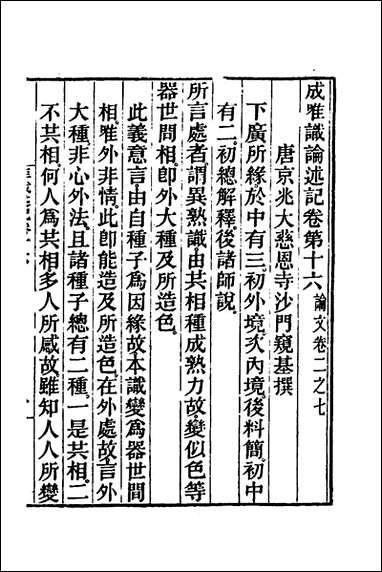 成唯識論述記卷第十六 論文卷二之七
唐京兆大慈恩寺沙門窺基撰
下廣所緣於中有三。初外境。次內境。後料簡。初中
有二。初總解釋。後諸師說。
所言處者。謂異熟識。由共相種成熟力故。變似色等
器世間相。即外大種及所造色。
此義意言。由自種子為因緣故。本識變為器世間
相。唯外非情。此即能造及所造色。在外處故。言外
大種。非心外法。且諸種子總有二種。一是共相。二
不共相。何人為共相。多人所感故。雖知人人所變